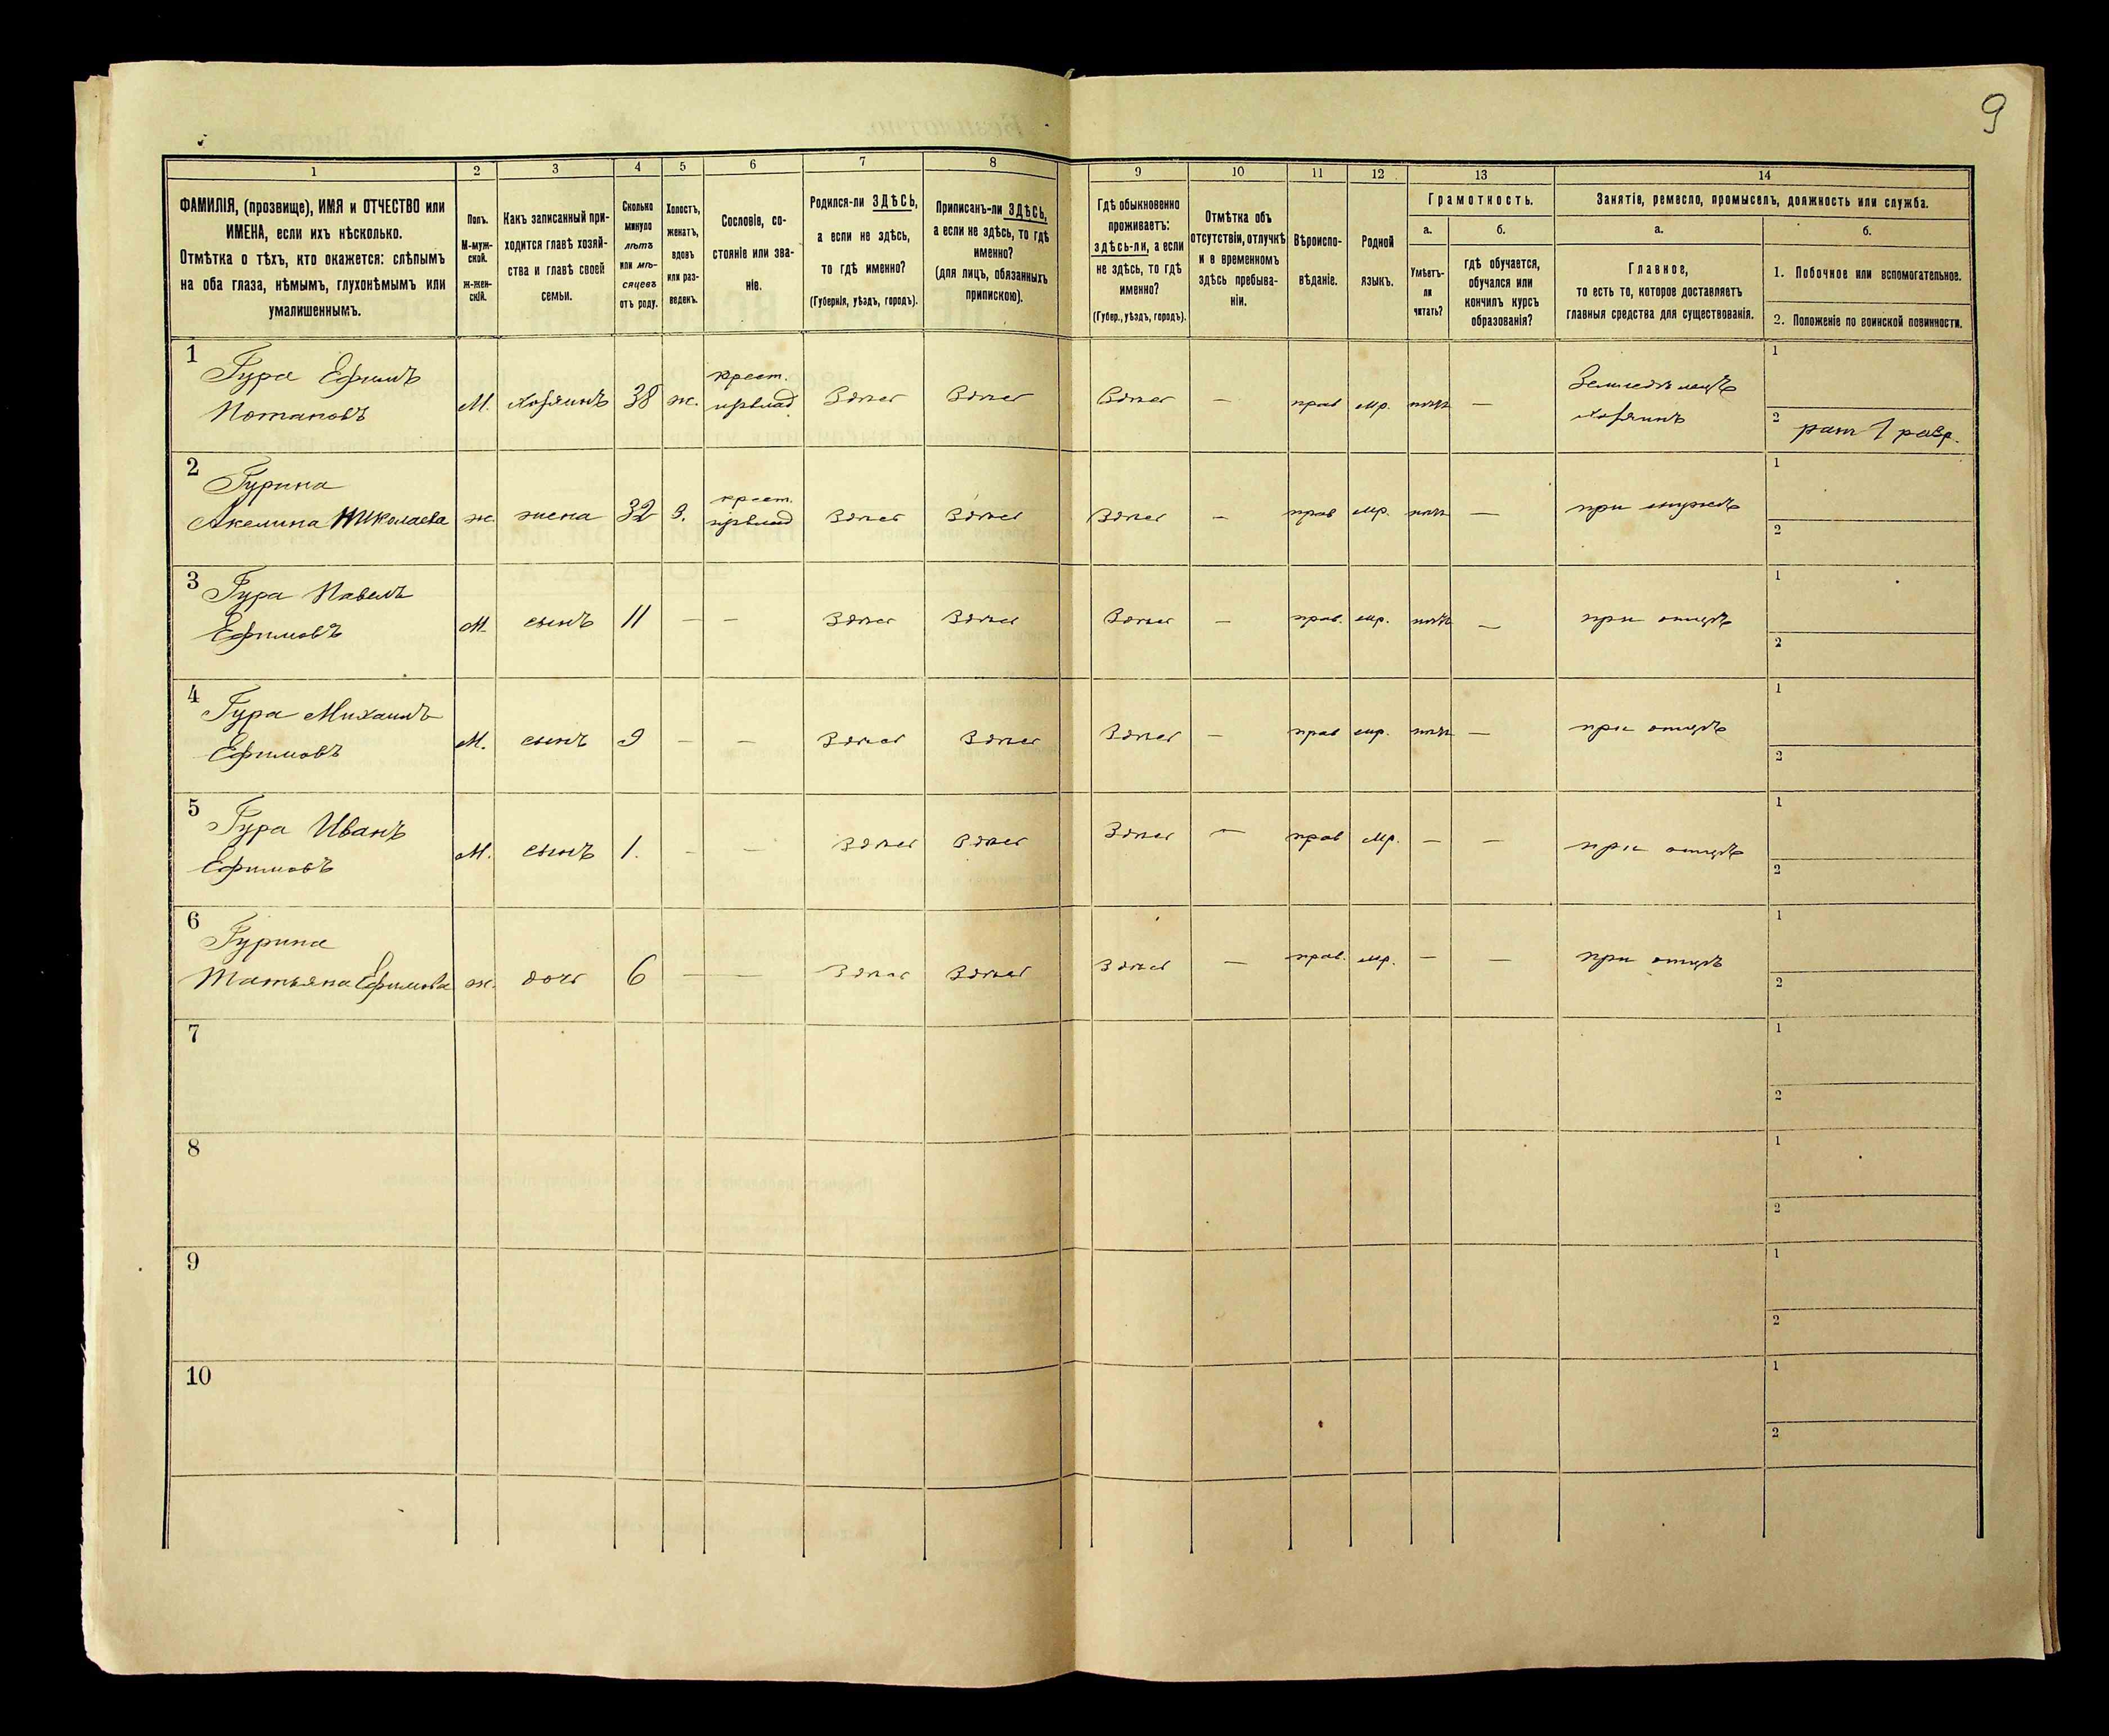 9
1 2 3 4 5 6 7 8 9 10 11 12 13 14
ФАМИЛІЯ, (прозвище), ИМЯ и ОТЧЕСТВО или
ИМЕНА, если ихъ нѣсколько.
Отмѣтка о тѣхъ, кто окажется: слѣпымъ
на оба глаза, нѣмымъ, глухонѣмымъ или
умалишеннымъ.
Полъ.
М-муж-
ской.
Ж-жен-
скій.
Какъ записанный при-
ходится главѣ хозяй-
ства и главѣ своей
семьи.
Сколько
минуло
лѣтъ
или мѣ-
сяцевъ
отъ роду.
Холостъ,
женатъ,
вдовъ
или раз-
веденъ.
Сословіе, со-
стояніе или зва-
ніе.
Родился-ли ЗДѢСЬ,
а если не здѣсь,
то гдѣ именно?
(Губернія, уѣздъ, городъ).
Приписанъ-ли ЗДѢСЬ,
а если не здѣсь, то гдѣ
именно?
(для лицъ, обязанныхъ
припискою).
Гдѣ обыкновенно
проживаетъ:
здѣсь-ли, а если
не здѣсь, то гдѣ
именно?
(Губер., уѣздъ, городъ).
Отмѣтка объ
отсутствіи, отлучкѣ
и о временномъ
здѣсь пребыва-
ніи.
Вѣроиспо-
вѣданіе.
Родной
языкъ.
Грамотность.
а.
Умѣетъ-
ли
читать?
б.
гдѣ обучается,
обучался или
кончилъ курсъ
образованія?
Занятіе, ремесло, промыселъ, должность или служба.
а.
Главное,
то есть то, которое доставляетъ
главныя средства для существованія.
б.
1. Побочное или вспомогательное.
2. Положеніе по воинской повинности.
1 Гура Ефимъ
Потаповъ М. хозяинъ 38 ж. крест. Здѣсь Здѣсь Здѣсь — прав мр. — Земледѣлецъ
хозяинъ 1
2 рат 1 разр.
2 Гурина
Акелина Николаева ж. жена 32 з. крест. Здѣсь Здѣсь Здѣсь — прав мр. — при мужѣ 1
2
3 Гура Павелъ
Ефимовъ М. сынъ 11 — — Здѣсь Здѣсь Здѣсь — прав. мр. — при отцѣ 1
2
4 Гура Михаилъ
Ефимовъ М. сынъ 9 — — Здѣсь Здѣсь Здѣсь — прав мр. — при отцѣ 1
2
5 Гура Иванъ
Ефимовъ М. сынъ 1. — — Здѣсь Здѣсь Здѣсь — прав мр. — — при отцѣ 1
2
6 Гурина
Татьяна Ефимова ж. дочь 6 — — Здѣсь Здѣсь Здѣсь — прав. мр. — — при отцѣ 1
2
7 1
2
8 1
2
9 1
2
10 1
2